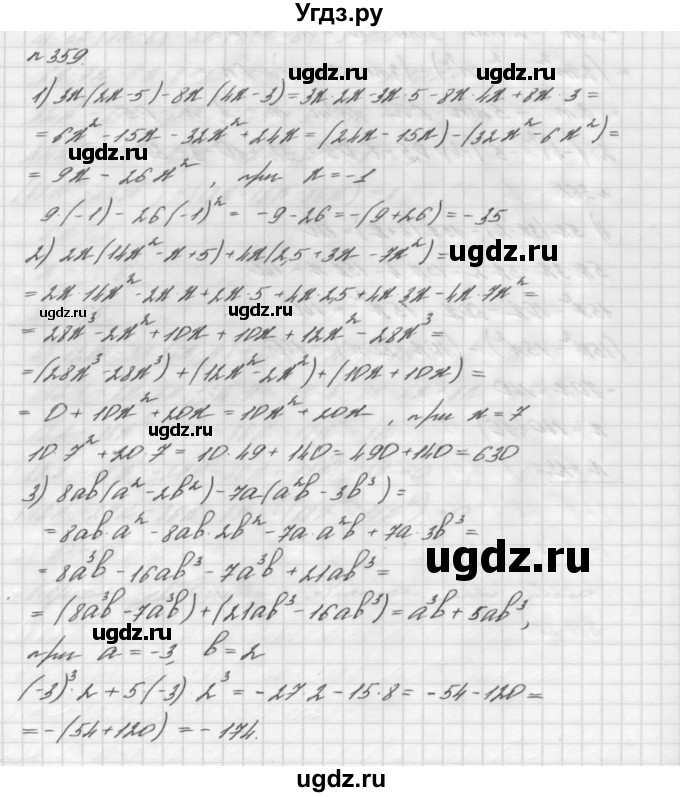 Угдз.ру
ugdz.ru
n 359.
1) 3x(2x-5)-8x(4x-3)=3x·2x-3x·5-8x·4x+8x·3=
= 6x² -15x - 32x² + 24x = (24x - 15x) - (32x² - 6x²) =
ugdz.ru
ugdz.ru
= 9x - 26x², при x=-1
9·(-1) - 26(-1)² = -9-26=-(9+26)=-35
2) 2x(14x² - x + 5) + 4x(2,5 + 3x - 7x²) =
ugdz.ru
= 2x·14x² - 2x·x + 2x·5 + 4x·2,5 + 4x·3x - 4x·7x² =
ugdz.ru
ugdz.ru
= 28x³ - 2x² + 10x + 10x + 12x² - 28x³ =
= (28x³ - 28x³) + (12x² - 2x²) + (10x + 10x) =
= 0 + 10x² + 20x = 10x² + 20x, при x = 7
ugdz.ru
10·7² + 20·7 = 10·49 + 140 = 490 + 140 = 630
3) 8ab(a² - 2b²) - 7a(a²b - 3b³) =
= 8ab·a² - 8ab·2b² - 7a·a²b + 7a·3b³ =
ugdz.ru
= 8a³b - 16ab³ - 7a³b + 21ab³ =
= (8a³b - 7a³b) + (21ab³ - 16ab³) = a³b + 5ab³,
ugdz.ru
при a = -3, b = 2
(-3)³·2 + 5(-3)·2³ = -27·2 - 15·8 = -54 - 120 =
ugdz.ru
= -(54+120) = - 174.
ugdz.ru
ugdz.ru